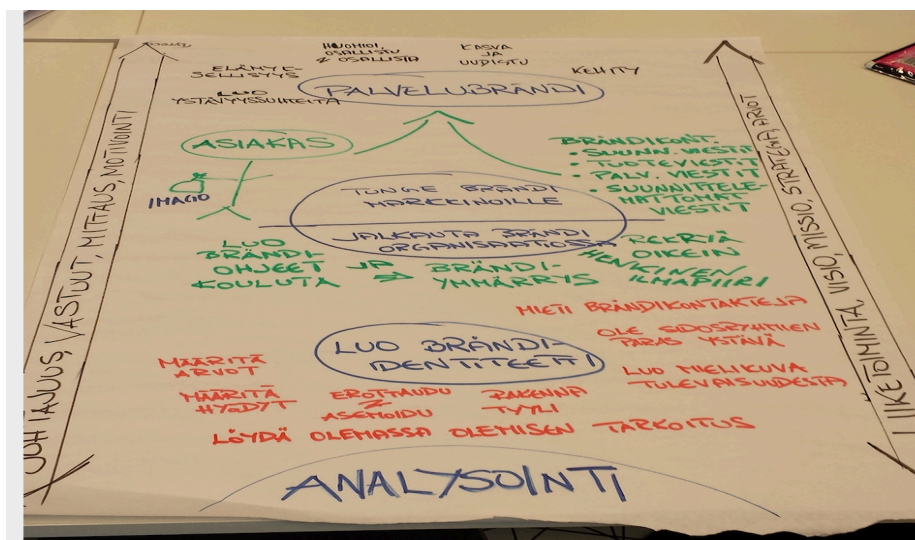 HUOMIOI,
OSALLISTU
& OSALLISTA
KASVA
JA
UUDISTU
ELÄMYK-
SELLISYYS
KEHITY
LUO
YSTÄVYYSSUHTEITA
PALVELUBRÄNDI
ASIAKAS
IMAGO
BRÄNDIKONT.
• SUUNN. VIESTIT
• TUOTEVIESTIT
• PALV. VIESTIT
• SUUNNITTELE-
MATTOMAT
VIESTIT
TUNGE BRÄNDI
MARKKINOILLE
JALKAUTA BRÄNDI
ORGANISAATIOSSA
LUO
BRÄNDI
OHJEET
KOULUTA
JA
BRÄNDI-
YMMÄRRYS
REKRYÄ
OIKEIN
HENKINEN
ILMAPIIRI
MIETI BRÄNDIKONTAKTEJA
OLE SIDOSRYHMIEN
PARAS YSTÄVÄ
LUO MIELIKUVA
TULEVAISUUDESTA
LUO BRÄNDI-
IDENTITEETTI
MÄÄRITÄ
ARVOT
MÄÄRITÄ
HYÖDYT
EROTTAUDU
&
ASEMOIDU
RAKENNA
TYYLI
LÖYDÄ OLEMASSA OLEMISEN TARKOITUS
ANALYSOINTI
JOHTAJUUS, VASTUUT, MITTAUS, MOTIVOINTI
LIIKETOIMINTA, VISIO, MISSIO, STRATEGIA, ARVOT